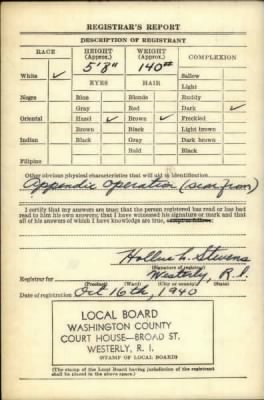 REGISTRAR'S REPORT
DESCRIPTION OF REGISTRANT
RACE HEIGHT (Approx.) WEIGHT (Approx.) COMPLEXION
5'8" 140#
White ✓ Sallow
EYES HAIR Light
Negro Blue Blonde Ruddy
Gray Red Dark ✓
Oriental Hazel ✓ Brown ✓ Freckled
Indian Brown Black Light brown
Black Gray Dark brown
Bald Black
Filipino
Other obvious physical characteristics that will aid in identification
Appendix operation (scar from)
I certify that my answers are true; that the person registered has read or has had
read to him his own answers; that I have witnessed his signature or mark and that
all of his answers of which I have knowledge are true, except as follows:
Hollus L. Stevens
(Signature of registrar)
Registrar for Westerly, R.I.
(Precinct) (Ward) (City or county) (State)
Date of registration Oct 16th, 1940
LOCAL BOARD
WASHINGTON COUNTY
COURT HOUSE—BROAD ST.
WESTERLY, R. I.
(STAMP OF LOCAL BOARD)
(The stamp of the Local Board having jurisdiction of the registrant
shall be placed in the above space.)